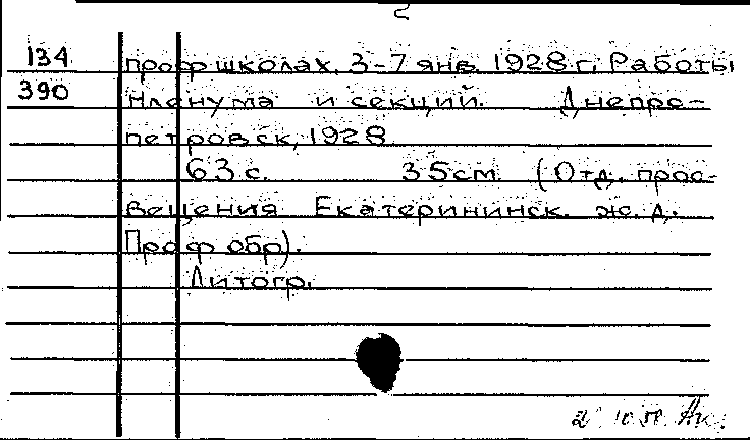 2
134 проф школах. 3-7 янв. 1928 г. Работы
390 Пленума и секций. Днепро-
петровск, 1928.
63 с. 35 см (Отд. прос-
вещения Екатерининск. ж. д.
Проф обр).
Литогр.